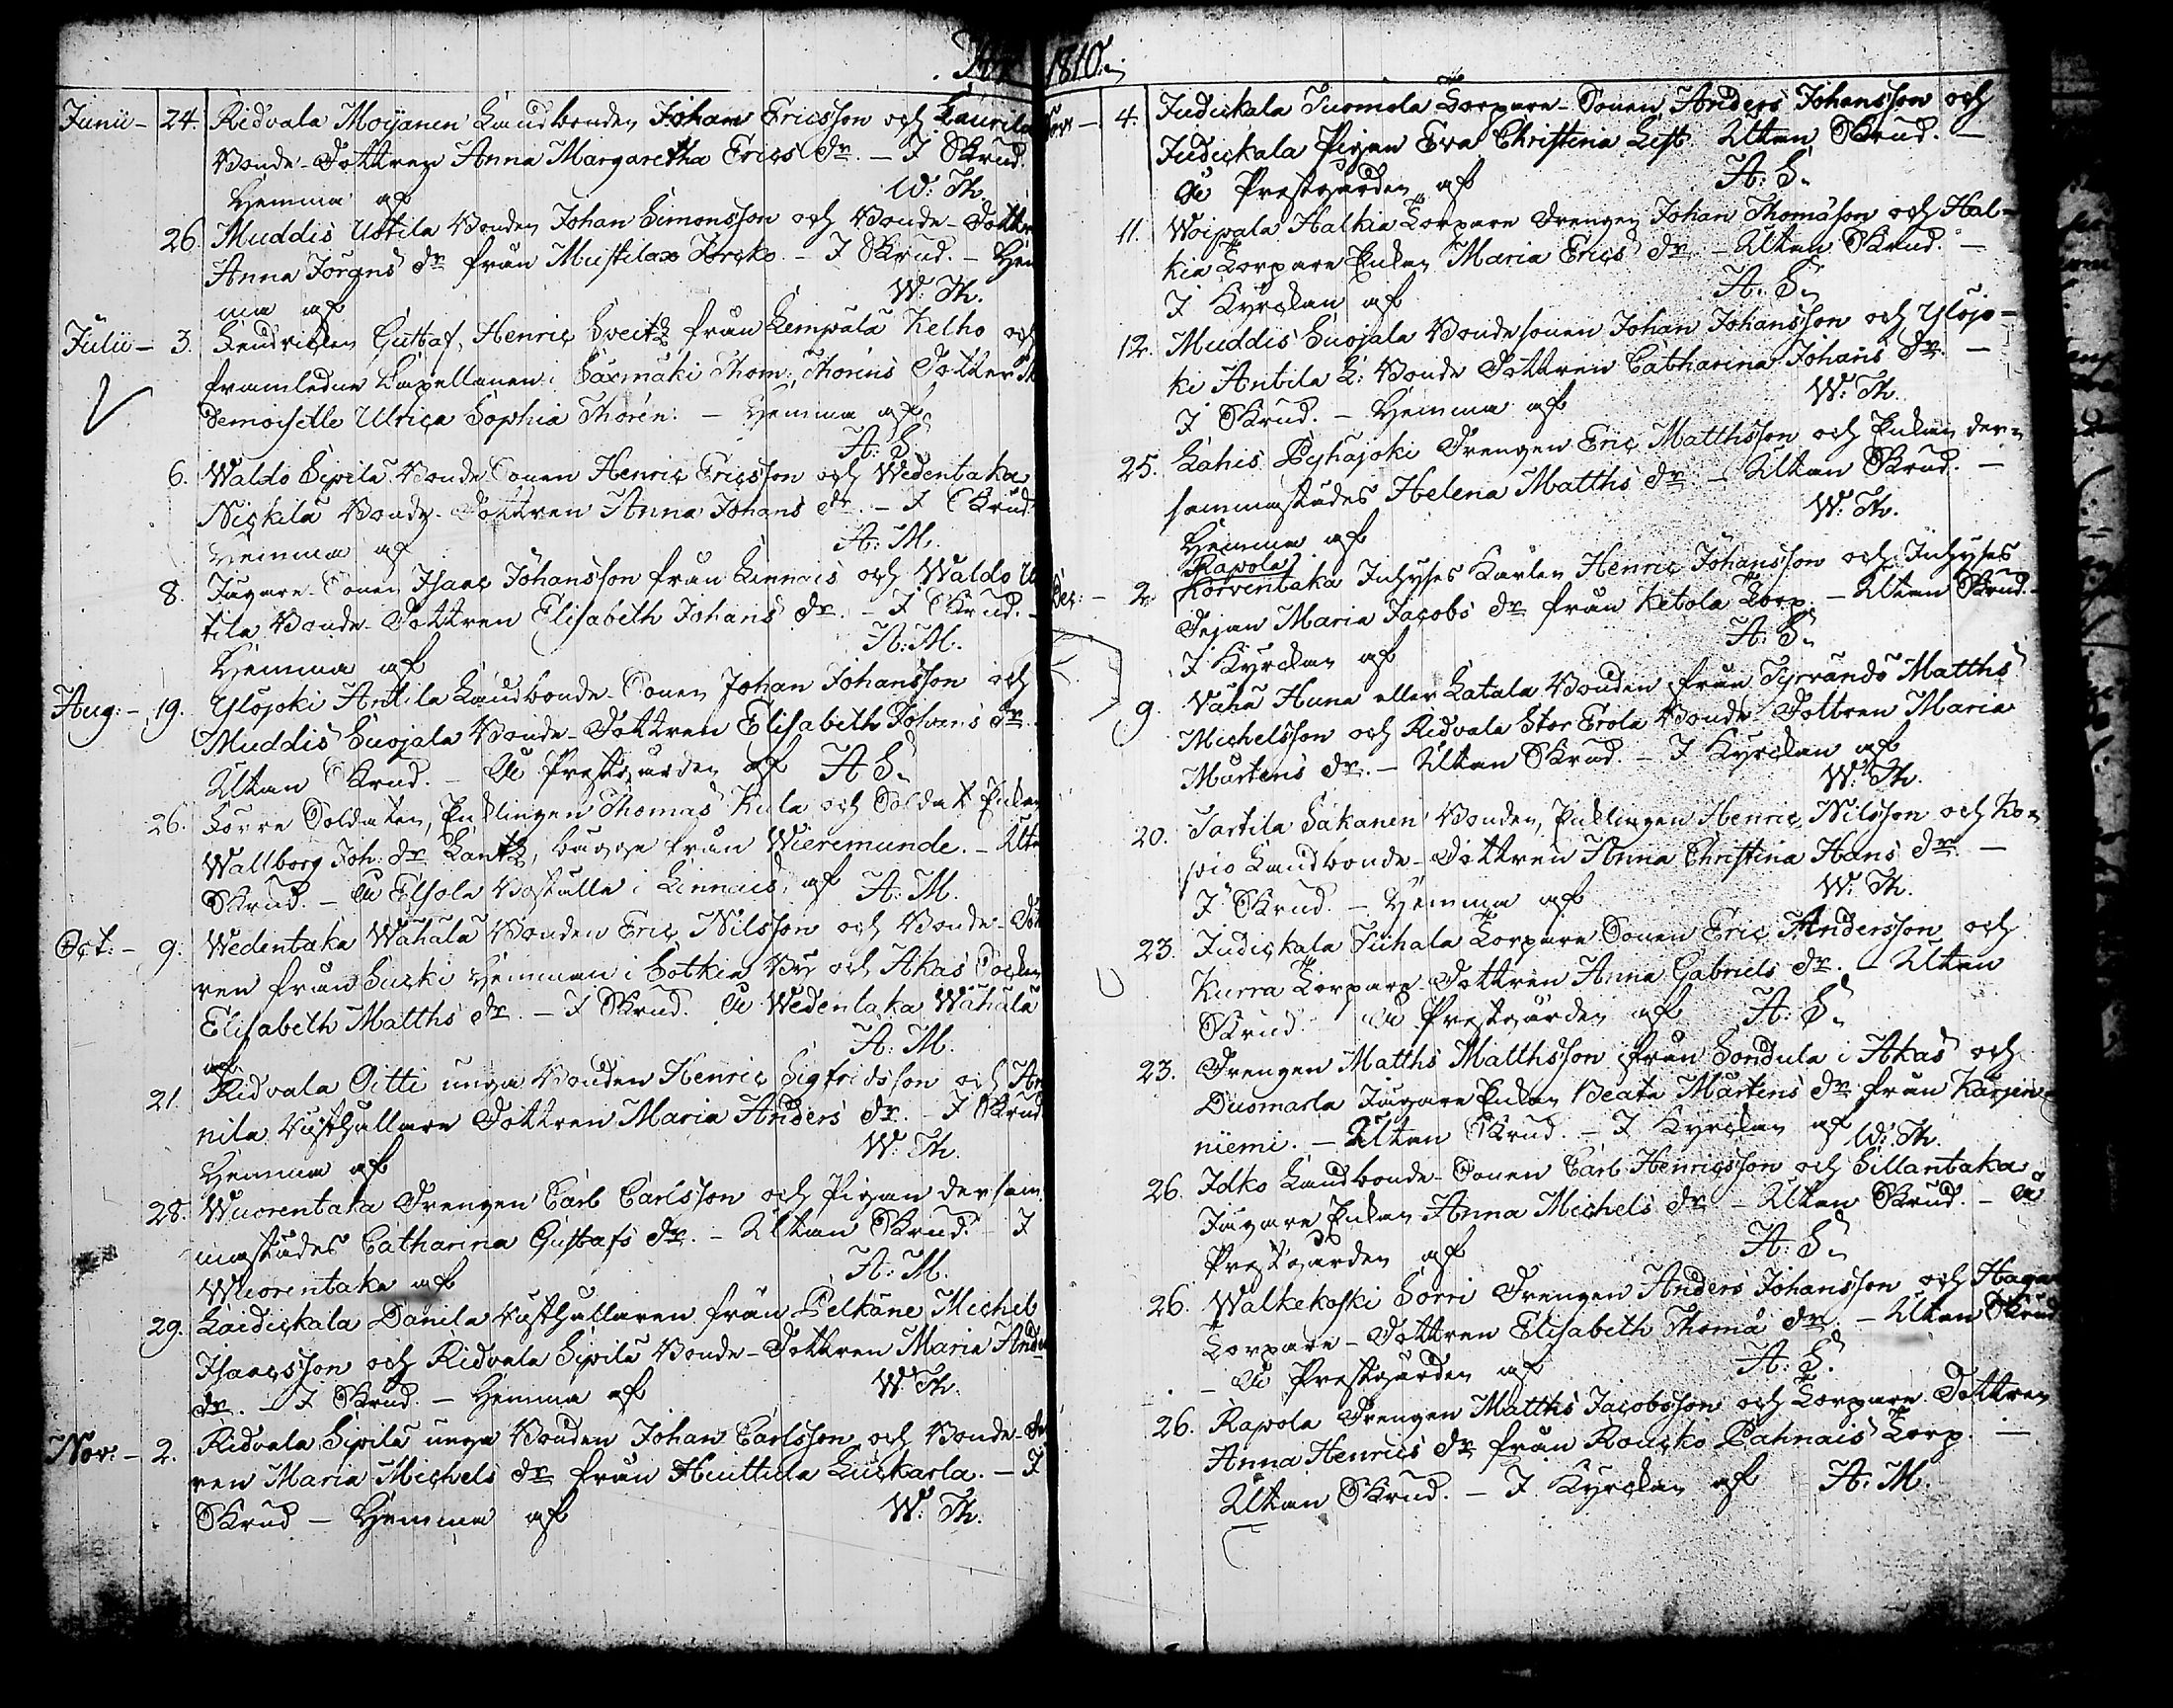 1810.
Junii - 24. Ridvala Moijanen Landbonden Johan Ericsson och Laurila
Bonde-Dottren Anna Margaretha Erics dr. - I Skrud.
Hemma af W: Th.
26. Muddis Uotila Bonden Johan Simonsson och Bonde-Dottr
Anna Jörans dr från Mustila - I Skrud. - Hem
ma af W: Th.
Julii - 3. Gustaf Henric Sveitz från Lempälä Kelho och
framledne Capellanen i Säxmäki Thom: Thoréns Dotter
Demoiselle Ulrica Sophia Thorén: - Hemma af
A: S.
6. Waldo Sipilä Bonde Sonen Henric Ericsson och Wedentaka
Nickilä Bonde-Dottren Anna Johans dr. - I Skrud
Hemma af A: M.
8. Jägare-Sonen Isaac Johansson från Linnais och Waldo U
tila Bonde-Dottren Elisabeth Johans dr. - I Skrud. -
Hemma af A: M.
Aug: - 19. Ylöjoki Anttila Landbonde-Sonen Johan Johansson och
Muddis Suojala Bonde-Dottren Elisabeth Johans dr.
Utan Skrud. - Å Prestgården af A S.
26. Sorre Soldaten, Enklingen Thomas Kula och Soldat Enkan
Wallborg Joh: dr Lantz, bägge från Wieremunde. - Uta
Skrud. - Å Elsola Boställe i Linnais af A: M.
Oct: - 9. Wedentaka Wähälä Bonden Eric Nilsson och Bonde-Dot
ren från Sucki Hemman i Sotkia By och Akas Socken
Elisabeth Matths dr. - I Skrud. Å Wedentaka Wähälä
af A: M.
21. Ridvala Oitti unga Bonden Henric Sigfridsson och An
nila Rusthållare Dottren Maria Anders dr. - I Skrud
Hemma af W: Th.
28. Wuorentaka Drengen Carl Carlsson och Pigan dersam
mastädes Catharina Gustafs dr. - Utan Skrud. - I
Wuorentaka af A: M.
29. Laidickala Danila Rusthållaren från Pelkäne Michel
Isaacsson och Ridvala Sipilä Bonde-Dottren Maria Ande
dr. - I Skrud. - Hemma af W: Th.
Nov: - 2. Ridvala Sipilä unga Bonden Johan Carlsson och Bonde-Do
ren Maria Michels dr från Huittula Luckarla. - I
Skrud - Hemma af W: Th.
Nov: - 4. Judickala Tuomola Torpare-Sonen Anders Johansson och
Judickala Pigan Eva Christina List Utan Skrud. -
Å Prestgården af A: S.
11. Woipala Halkia Torpare Drengen Johan Thomasson och Hal-
kia Torpare Enkan Maria Erics dr. - Utan Skrud. -
I Kyrckan af A: S.
12. Muddis Suojala Bondesonen Johan Johansson och Ylöjo-
ki Antila L: Bonde Dottren Catharina Johans dr. -
I Skrud. - Hemma af W: Th.
25. Lahis Pyhäjoki Drengen Eric Matthsson och Enkan der-
sammastädes Helena Matths dr. - Utan Skrud. -
Hemma af W: Th.
Rapola
Dec: - 2. Korventaka Inhyses Karlen Henric Johansson och Inhyses
Pejan Maria Jacobs dr från Ketola Torp. - Utan Skrud. -
I Kyrckan af A: S.
9. Vähä Huna eller Latala Bonden från Tyrvändö Matths
Michelsson och Ridvala Stor Erola Bonde Dottren Maria
Mårtens dr. - Utan Skrud. - I Kyrckan af
W: Th.
20. Tartila Säkanen Bonden, Enklingen Henric Nilsson och Ko-
pio Landbonde-Dottren Anna Christina Hans dr. -
I Skrud. - Hemma af W: Th.
23. Judickala Juhala Torpare Sonen Eric Andersson och
Kurra Torpare-Dottren Anna Gabriels dr. - Utan
Skrud Å Prestgården af A: S.
23. Drengen Matths Matthsson från Sondula i Akas och
Duomarla Jägare Enkan Beata Mårtens dr från Kärjen-
niemi. - Utan Skrud. - I Kyrckan af W: Th.
26. Idko Landbonde-Sonen Carl Henricsson och Sillantaka
Jägare Enkan Anna Michels dr - Utan Skrud. - Å
Prestgården af A: S.
26. Walkekoski Sorri Drengen Anders Johansson och Haga
Torpare-Dottren Elisabeth Thomä dr. - Utan Skrud
- Å Prestgården af A: S.
26. Rapola Drengen Matths Jacobsson och Torpare Dottren
Anna Henrics dr från Roucko Pahnais Torp. -
Utan Skrud. - I Kyrckan af A: M.